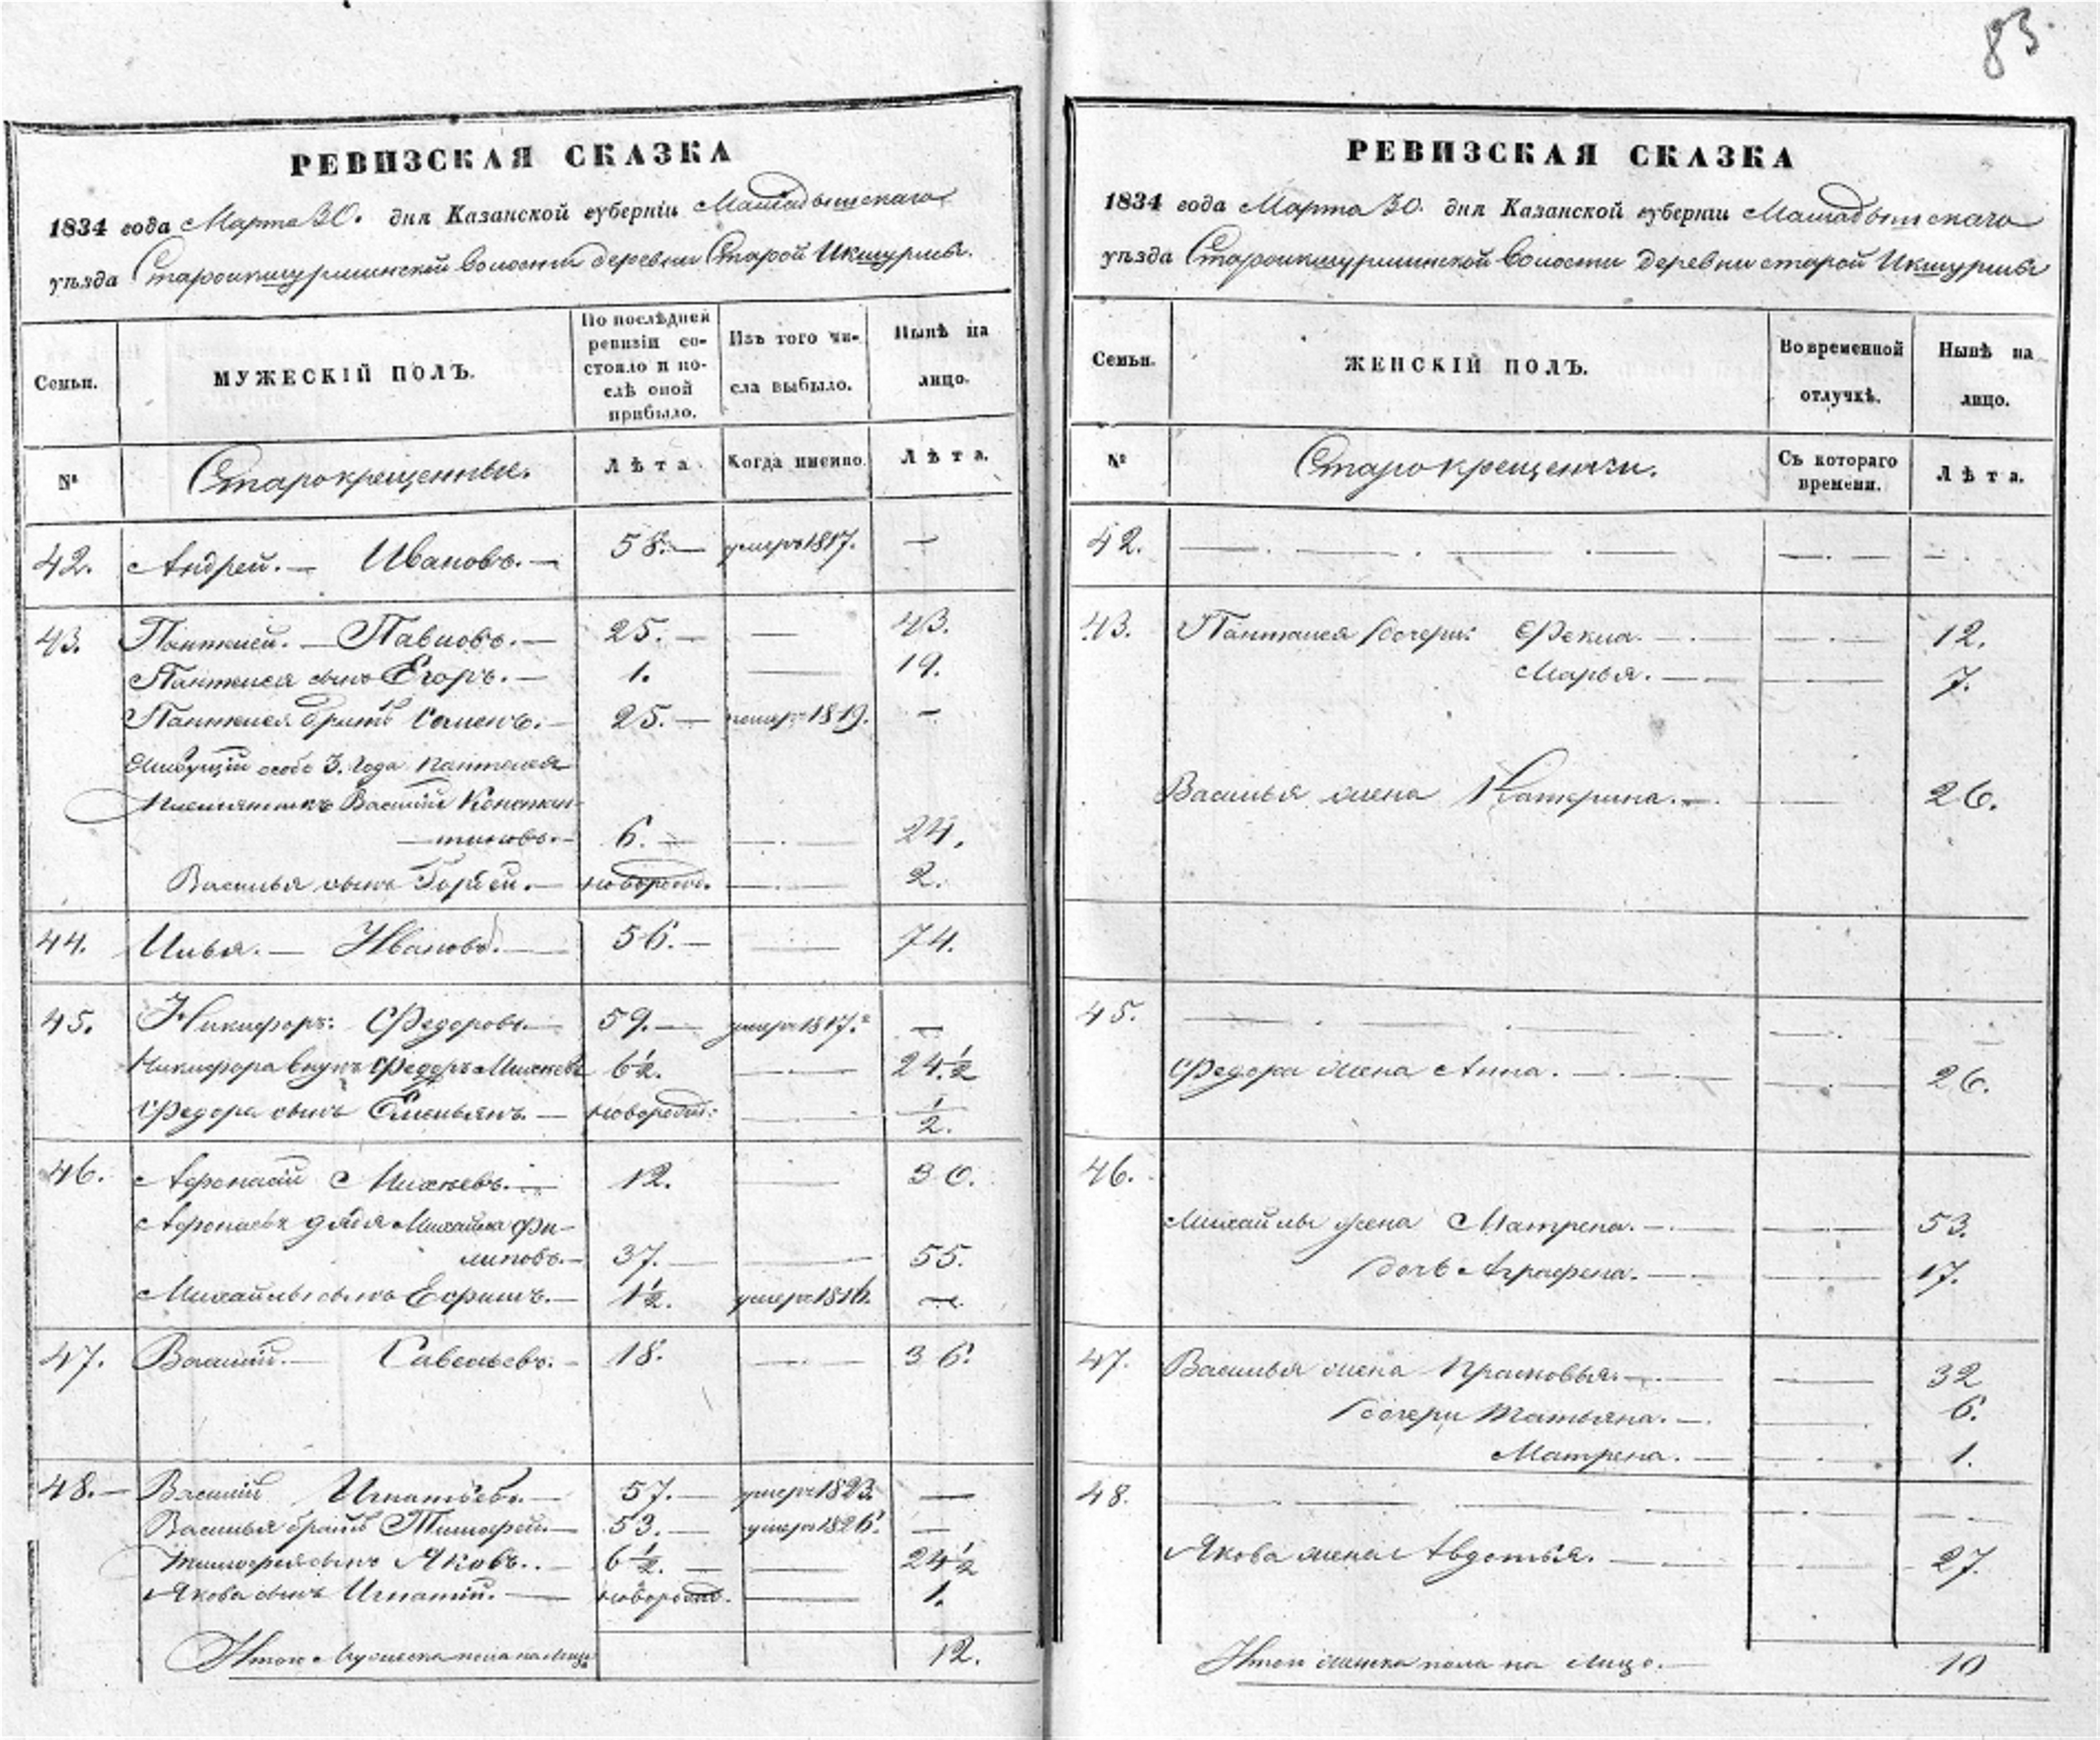 83.
РЕВИЗСКАЯ СКАЗКА
1834 года Марта 30. дня Казанской губерніи Мамадышскаго
уѣзда Староикшурминской Волости деревни Старой Икшурмы.
Семьи.
МУЖЕСКІЙ ПОЛЪ.
По послѣдней ревизіи состояло и послѣ оной прибыло.
Изъ того числа выбыло.
Нынѣ на лицо.
№
Старокрещенные.
Лѣта.
Когда именно.
Лѣта.
42. Андрей. — Ивановъ. — 58. — умеръ 1817. —
43. Пантелей. — Павловъ. — 25. — — 43.
Пантелея сынъ Егоръ. — 1. — 19.
Пантелея братъ Семенъ. — 25. — умеръ 1819. —
Живущій особо 3. года Пантелея
племянникъ Василій Констан-
тиновъ. — 6. — — 24.
Василья сынъ Гордей. — новорожд. — 2.
44. Илья. — Ивановъ. — 56. — — 74.
45. Никифоръ. Федоровъ. — 59. — умеръ 1817. —
Никифора внукъ Федоръ Михеевъ 6½. — 24½
Федора сынъ Емельянъ. — новорожд. — ½.
46. Афонасій Михеевъ. — 12. — 30.
Афонасья дядя Михайла Фи-
липовъ. — 37. — — 55.
Михайлы сынъ Ефимъ. — 1½. умеръ 1816. —
47. Василій. — Савельевъ. — 18. — 36.
48. — Василій Игнатьевъ. — 57. — умеръ 1823. —
Василья братъ Тимофей. — 53. — умеръ 1826. —
Тимофея сынъ Яковъ. — 6½. — — 24½
Якова сынъ Игнатій. — новорожд. — 1.
Итого мужеска пола на лицо 12.
РЕВИЗСКАЯ СКАЗКА
1834 года Марта 30. дня Казанской губерніи Мамадышскаго
уѣзда Староикшурминской Волости деревни старой Икшурмы
Семьи.
ЖЕНСКІЙ ПОЛЪ.
Во временной отлучкѣ.
Нынѣ на лицо.
№
Старокрещенки.
Съ котораго времени.
Лѣта.
42. — . — . — . — — . — — .
43. Пантелея дочери: Фекла. — — . — 12.
Марья. — — 7.
Василья жена Катерина. — — 26.
45. — . — . — . —
Федора жена Анна. — — 26.
46.
Михайлы жена Матрена. — — 53.
дочь Аграфена. — — 17.
47. Василья жена Прасковья. — — 32
дочери Татьяна. — — 6.
Матрена. — — 1.
48. — — — — —
Якова жена Авдотья. — — 27.
Итого женска пола на лицо. — 10